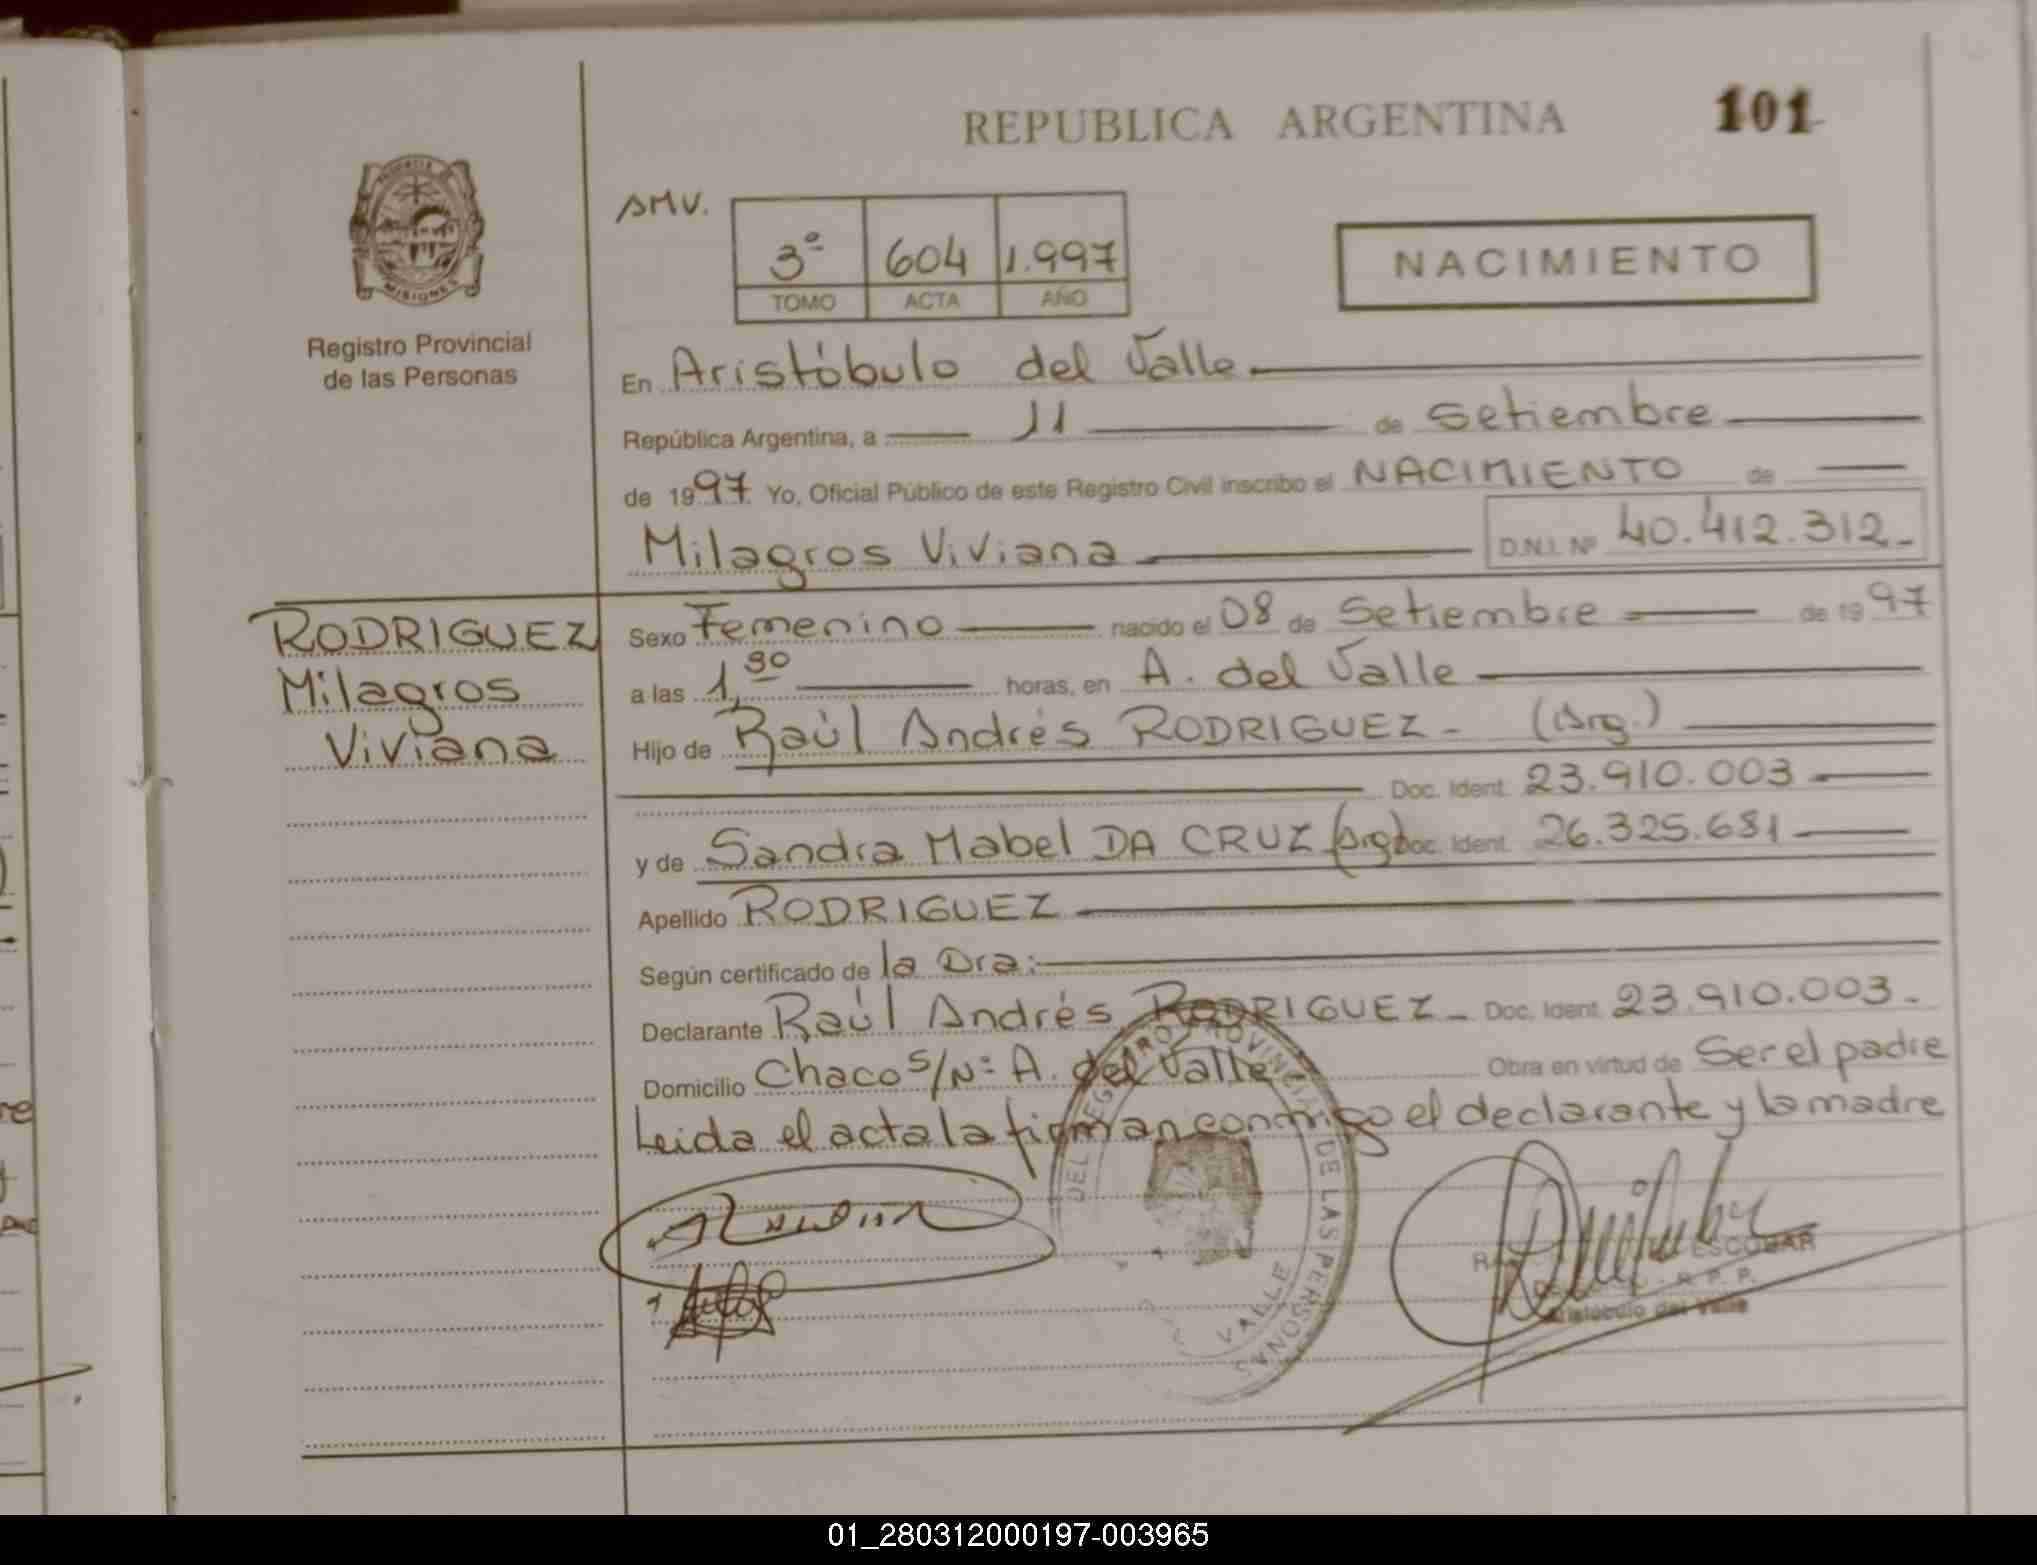 REPUBLICA ARGENTINA 101
PROVINCIA
MISIONES
Registro Provincial
de las Personas
AMV.
3º 604 1.997
TOMO ACTA AÑO
NACIMIENTO
En Aristóbulo del Valle
República Argentina, a 11 de Setiembre
de 1997 Yo, Oficial Público de este Registro Civil inscribo el NACIMIENTO de
Milagros Viviana D.N.I. Nº 40.412.312-
RODRIGUEZ
Milagros
Viviana
Sexo Femenino nacido el 08 de Setiembre de 1997
a las 1,30 horas, en A. del Valle
Hijo de Raúl Andrés RODRIGUEZ- (Arg.)
Doc. Ident. 23.910.003
y de Sandra Mabel DA CRUZ (Arg) Doc. Ident. 26.325.681
Apellido RODRIGUEZ
Según certificado de la Dra:
Declarante Raúl Andrés RODRIGUEZ- Doc. Ident. 23.910.003.
Domicilio Chaco S/Nº A. del Valle Obra en virtud de Ser el padre
Leida el acta la firman conmigo el declarante y la madre
DEL REGISTRO PROVINCIAL DE LAS PERSONAS
VALLE
ESCOBAR
R. P. P.
Aristóbulo del Valle
01_280312000197-003965